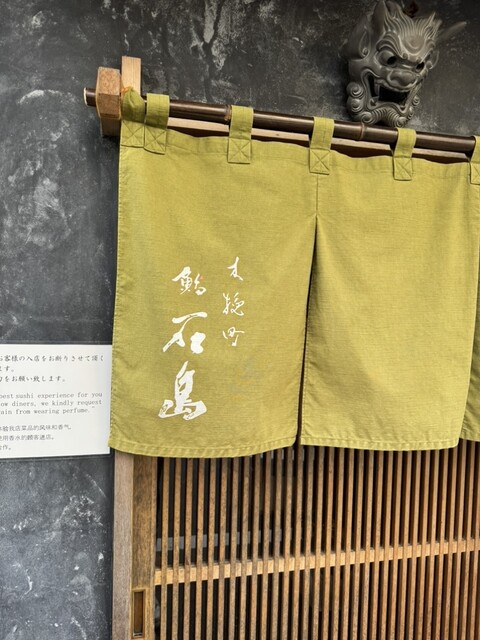 木挽町
鮨
石島
お客様の入店をお断りさせて頂く
ます。
力をお願い致します。
best sushi experience for you
ow diners, we kindly request
ain from wearing perfume."
使用香水的顾客进店。
合作。